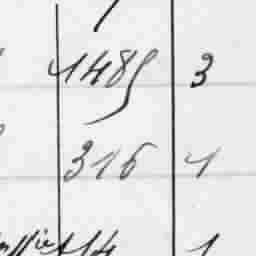 1485 3
316 1
14 1